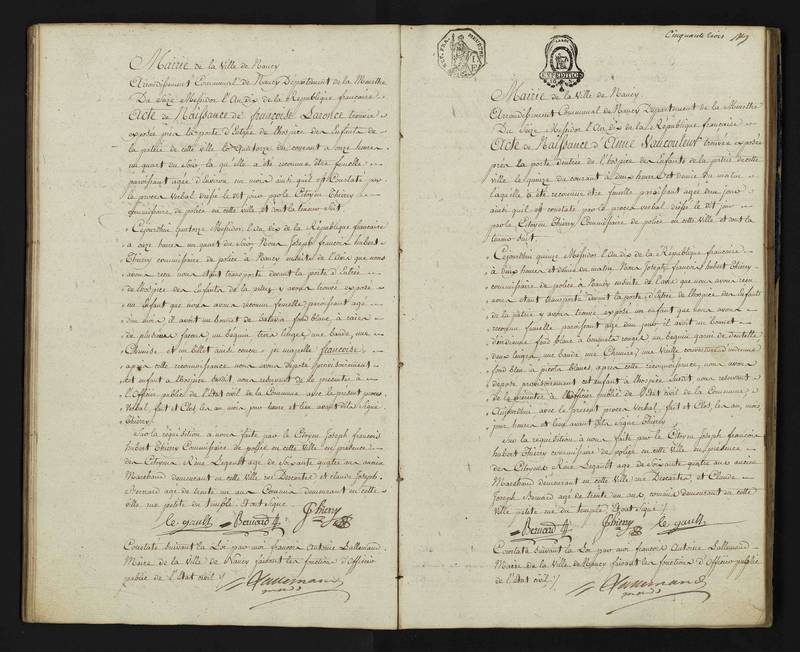 Mairie de la Ville de Nancy
Arrondissement Communal de Nancy Département de la Meurthe
Du Seize Messidor l'An dix de la République française
Acte de Naissance de françoise trouvée
exposée près la porte d'Entrée de l'hospice des Enfants de
la patrie de cette ville le quatorze du courant a onze heures
un quart du Soir la qu'elle a été reconnue être femelle
paraissant agée d'un mois ainsi quil est Constaté par
le procès verbal dressé le dit jour par le Citoyen Thiery
commissaire de police en cette ville et dont la teneur suit.
Cejourdhui quatorze Messidor l'an dix de la République française
a onze heures un quart du soir Nous Joseph françois hubert
Thiery commissaire de police à Nancy ensuite de l'avis que nous
avons reçu nous étant transporté devant la porte d'Entrée
de l'hospice des Enfants de la patrie y avons trouvé exposé
un Enfant que nous avons reconnu femelle, paraissant agé
d'un mois il avait un bonnet de fond blanc, à raies
de plusieurs façons un beguin trois langes une bande, une
Chemise et un billet ainsi conçu, je m'appelle françoise,
après cette reconnaissance nous avons déposé provisoirement
cet enfant a l'hospice susdit nous reservant de le presenter à
l'Officier public de l'Etat civil de la Commune avec le present procès
Verbal, fait et Clos les an mois jour heure et lieu avant dits Signé
Thiery.
Sur la réquisition a nous faite par le Citoyen Joseph françois
hubert Thiery Commissaire de police en cette Ville en présence
des Citoyens René Legault agé de Soixante quatre ans ancien
Marchand demeurant en cette Ville rue Descartes et Claude Joseph
Bernard agé de trente un ans Commis demeurant en cette
ville rue petite du temple Et ont Signé
le gault Bernard Thiery
Constaté suivant la Loi par moi françois Antoine Lallemand
Maire de la Ville de Nancy faisant les fonctions d'Officier
public de l'Etat civil
Lallemand
Cinquante trois
Mairie de la Ville de Nancy
Arrondissement Communal de Nancy Département de la Meurthe
Du Seize Messidor l'an dix de la République française
Acte de Naissance d'Anne Vaucouleur trouvée exposée
près la porte d'entrée de l'hospice des Enfants de la patrie de cette
ville le quinze du courant à deux heures et demie du matin
laquelle a été reconnue être femelle paraissant agée d'un jour
ainsi quil est constaté par le procès verbal dressé le dit jour
par le Citoyen Thiery Commissaire de police en cette Ville et dont la
teneur suit.
Cejourdhui quinze Messidor l'an dix de la République française
à deux heures et demie du matin Nous Joseph françois hubert Thiery
commissaire de police à Nancy ensuite de l'avis que nous avons reçu
nous étant transporté devant la porte d'Entrée de l'hospice des Enfants
de la patrie y avons trouvé exposé un enfant que nous avons
reconnu femelle paraissant agé d'un jour il avait un bonnet
d'indienne fond blanc à bouquets rouges un beguin garni de dentelle
deux langes, une bande une Chemise, une Vieille couverture d'indienne
fond blanc à blanc après cette reconnaissance, nous avons
déposé provisoirement cet enfant à l'hospice susdit nous reservant
de le presenter à l'Officier public de l'Etat civil de la Commune
Aujourdhui avec le present procès verbal, fait et Clos les an, mois,
jour heure et lieu avant dits Signé Thiery
Sur la réquisition à nous faite par le Citoyen Joseph françois
hubert Thiery commissaire de police en cette Ville en présence
des Citoyens René Legault agé de Soixante quatre ans ancien
Marchand demeurant en cette Ville rue Descartes et Claude
Joseph Bernard agé de trente un ans commis demeurant en cette
ville petite rue du temple Et ont signé
Bernard Thiery le gault
Constaté suivant la Loi par moi françois Antoine Lallemand
Maire de la Ville de Nancy faisant les fonctions d'Officier public
de l'Etat civil
Lallemand